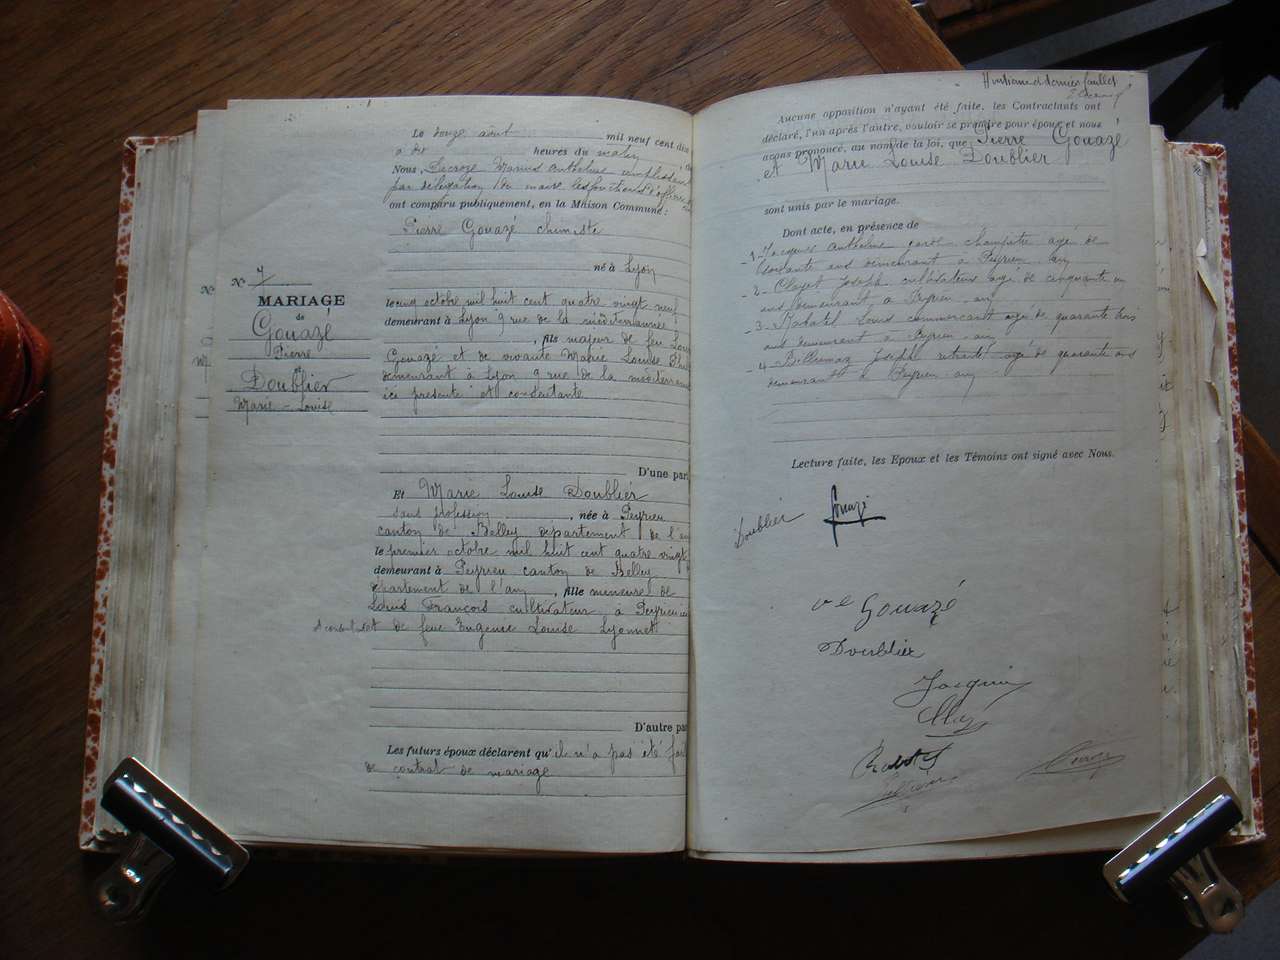 N° 7
MARIAGE
de
Gouazé
Pierre
et
Doublier
Marie-Louise
Le douze août mil neuf cent dix
à dix heures du matin
Nous, Marius Anthelme remplissant
par délégation du maire les fonctions d'officier
ont comparu publiquement, en la Maison Commune :
Pierre Gouazé chimiste
né à Lyon
le cinq octobre mil huit cent quatre vingt neuf
demeurant à Lyon 9 rue de la méditerranée
, fils majeur de feu Louis
Gouazé et de vivante Marie Louise
demeurant à Lyon 9 rue de la méditerranée
ici présente et consentante
D'une par
Et Marie Louise Doublier
sans profession, née à Peyrieu
canton de Belley département de l'ain
le premier octobre mil huit cent quatre vingt
demeurant à Peyrieu canton de Belley
département de l'ain, fille mineure de
Louis François cultivateur à Peyrieu ici
et consentant de feue Eugenie Louise Lyonnet
D'autre par
Les futurs époux déclarent qu'il n'a pas été fait
de contrat de mariage
Huitième et dernier feuillet
Aucune opposition n'ayant été faite, les Contractants ont
déclaré, l'un après l'autre, vouloir se prendre pour époux et nous
avons prononcé, au nom de la loi, que Pierre Gouazé
et Marie Louise Doublier
sont unis par le mariage.
Dont acte, en présence de
1- Jacquin Anthelme garde champêtre agé de
soixante ans demeurant à Peyrieu ain
2- Clayet Joseph cultivateur agé de cinquante un
ans demeurant à Peyrieu ain
3- Rabatel Louis commerçant agé de quarante trois
ans demeurant à Peyrieu ain
4- Joseph retraité agé de quarante ans
demeurant à Peyrieu ain
Lecture faite, les Epoux et les Témoins ont signé avec Nous.
Doublier Gouazé
Ve Gouazé
Doublier
Jacquin